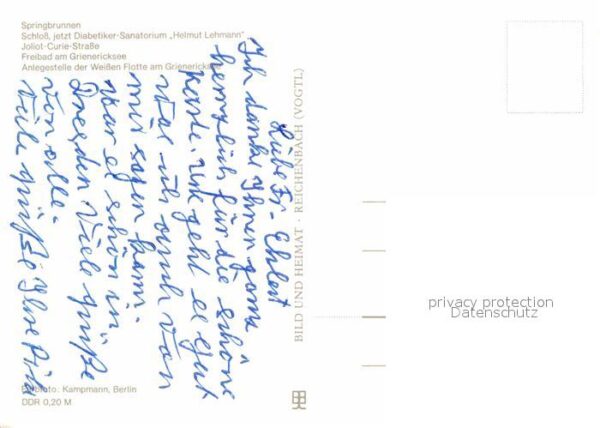 Springbrunnen
Schloß, jetzt Diabetiker-Sanatorium „Helmut Lehmann"
Joliot-Curie-Straße
Freibad am Grienericksee
Anlegestelle der Weißen Flotte am Grienericksee
Liebe Fr. Ehlert
Ich danke Ihnen ganz
herzlich für die schöne
Karte. Uns geht es gut
was ich auch von
mir sagen kann.
war es schön in
Dresden Viele grüße
von alle.
Viele grüße Ilse
BILD UND HEIMAT · REICHENBACH (VOGTL)
Farbfoto: Kampmann, Berlin
DDR 0,20 M
privacy protection
Datenschutz